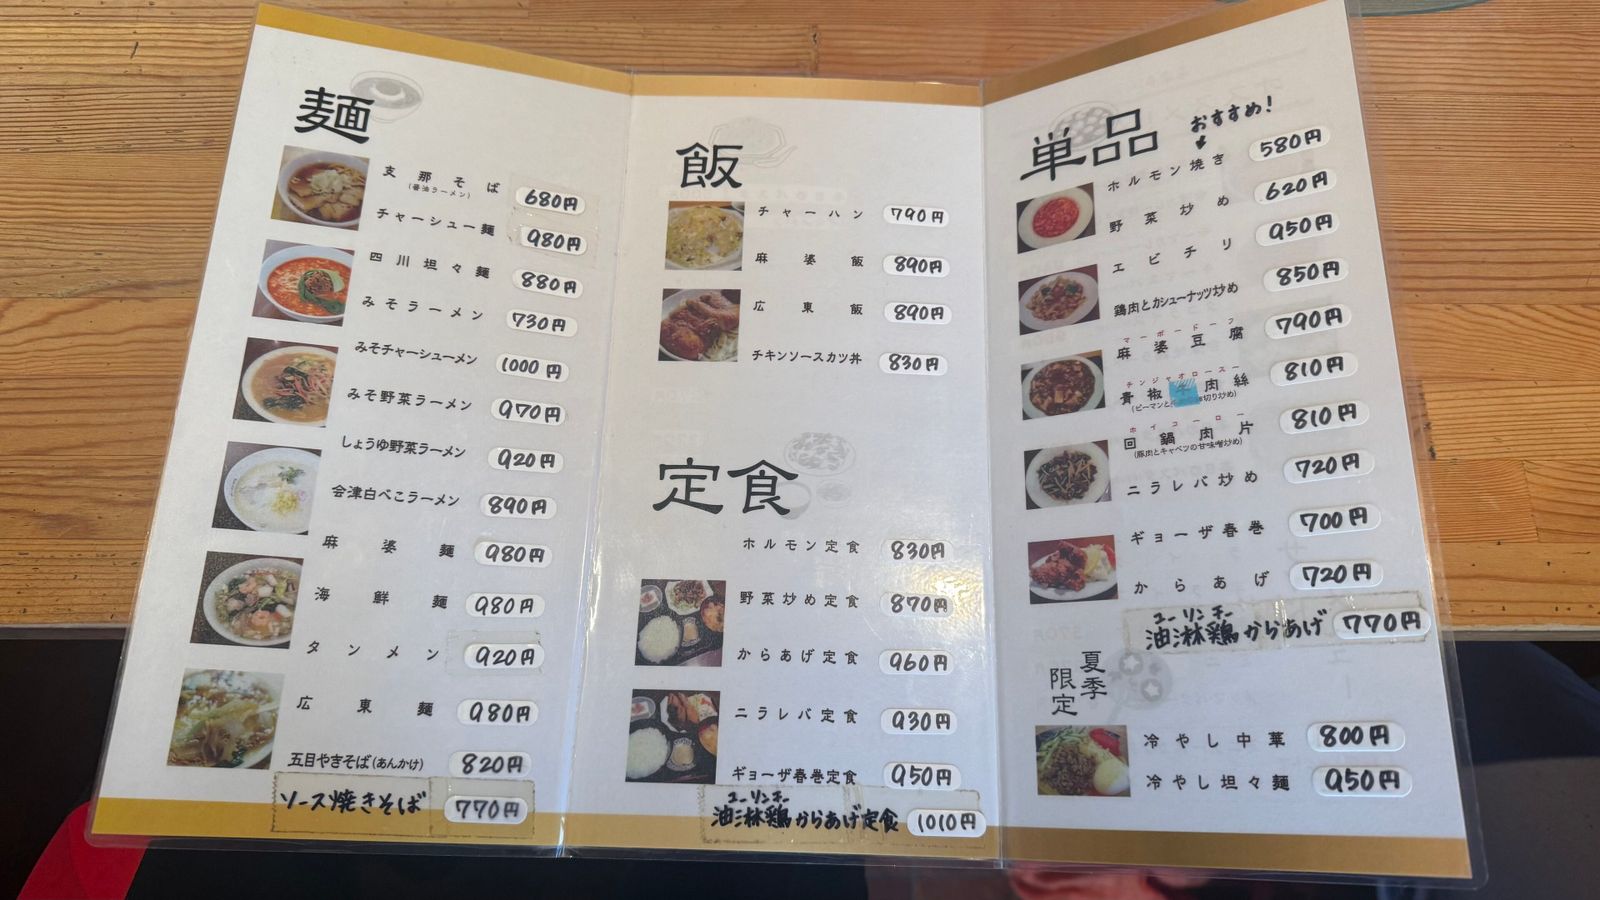 麺
支那そば 680円
(醤油ラーメン)
チャーシュー麺 980円
四川坦々麺 880円
みそラーメン 730円
みそチャーシューメン 1000円
みそ野菜ラーメン 970円
しょうゆ野菜ラーメン 920円
会津白べこラーメン 890円
麻婆麺 980円
海鮮麺 980円
タンメン 920円
広東麺 980円
五目やきそば(あんかけ) 820円
ソース焼きそば 770円
飯
チャーハン 790円
麻婆飯 890円
広東飯 890円
チキンソースカツ丼 830円
定食
ホルモン定食 830円
野菜炒め定食 870円
からあげ定食 960円
ニラレバ定食 930円
ギョーザ春巻定食 950円
ユーリンチー
油淋鶏からあげ定食 1010円
単品
おすすめ!
ホルモン焼き 580円
野菜炒め 620円
エビチリ 950円
鶏肉とカシューナッツ炒め 850円
マーボードーフ
麻婆豆腐 790円
チンジャオロースー
青椒肉絲 810円
(ピーマンと切り炒め)
ホイコーロー
回鍋肉片 810円
(豚肉とキャベツの甘味噌炒め)
ニラレバ炒め 720円
ギョーザ春巻 700円
からあげ 720円
ユーリンチー
油淋鶏からあげ 770円
夏季
限定
冷やし中華 800円
冷やし坦々麺 950円